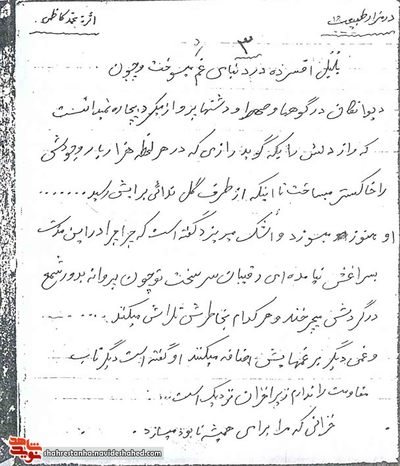 در مزار طبیعت ۱۵
اثر: محمد کاظمی
۳
بلبل افسرده در دنیای غم میسوخت و چون
دیوانگان در کوهها و صحرا و دشتها پرواز میکرد بیچاره نمیدانست
که راز دلش را بکه گوید رازی که در هر لحظه هزار بار وجودش
را خاکستر میساخت تا اینکه از طرف گل ندائی برایش رسید.......
او هنوز میسوزد و اشک میریزد گفته است که چرا در این مدت
بسراغش نیامده ای رقیبان سرسخت تو چون پروانه بدور شمع
در گردش میچرخند و هر کدام بخاطرش تلاش میکنند...
و غمی دیگر بر غمهایش اضافه میکنند او گفته است دیگر تاب
مقاومت را ندارم زیرا خزان نزدیک است...
خزانی که مرا برای همیشه نابود میسازد.
نوید شاهد
shahrestanha.navideshahed.com